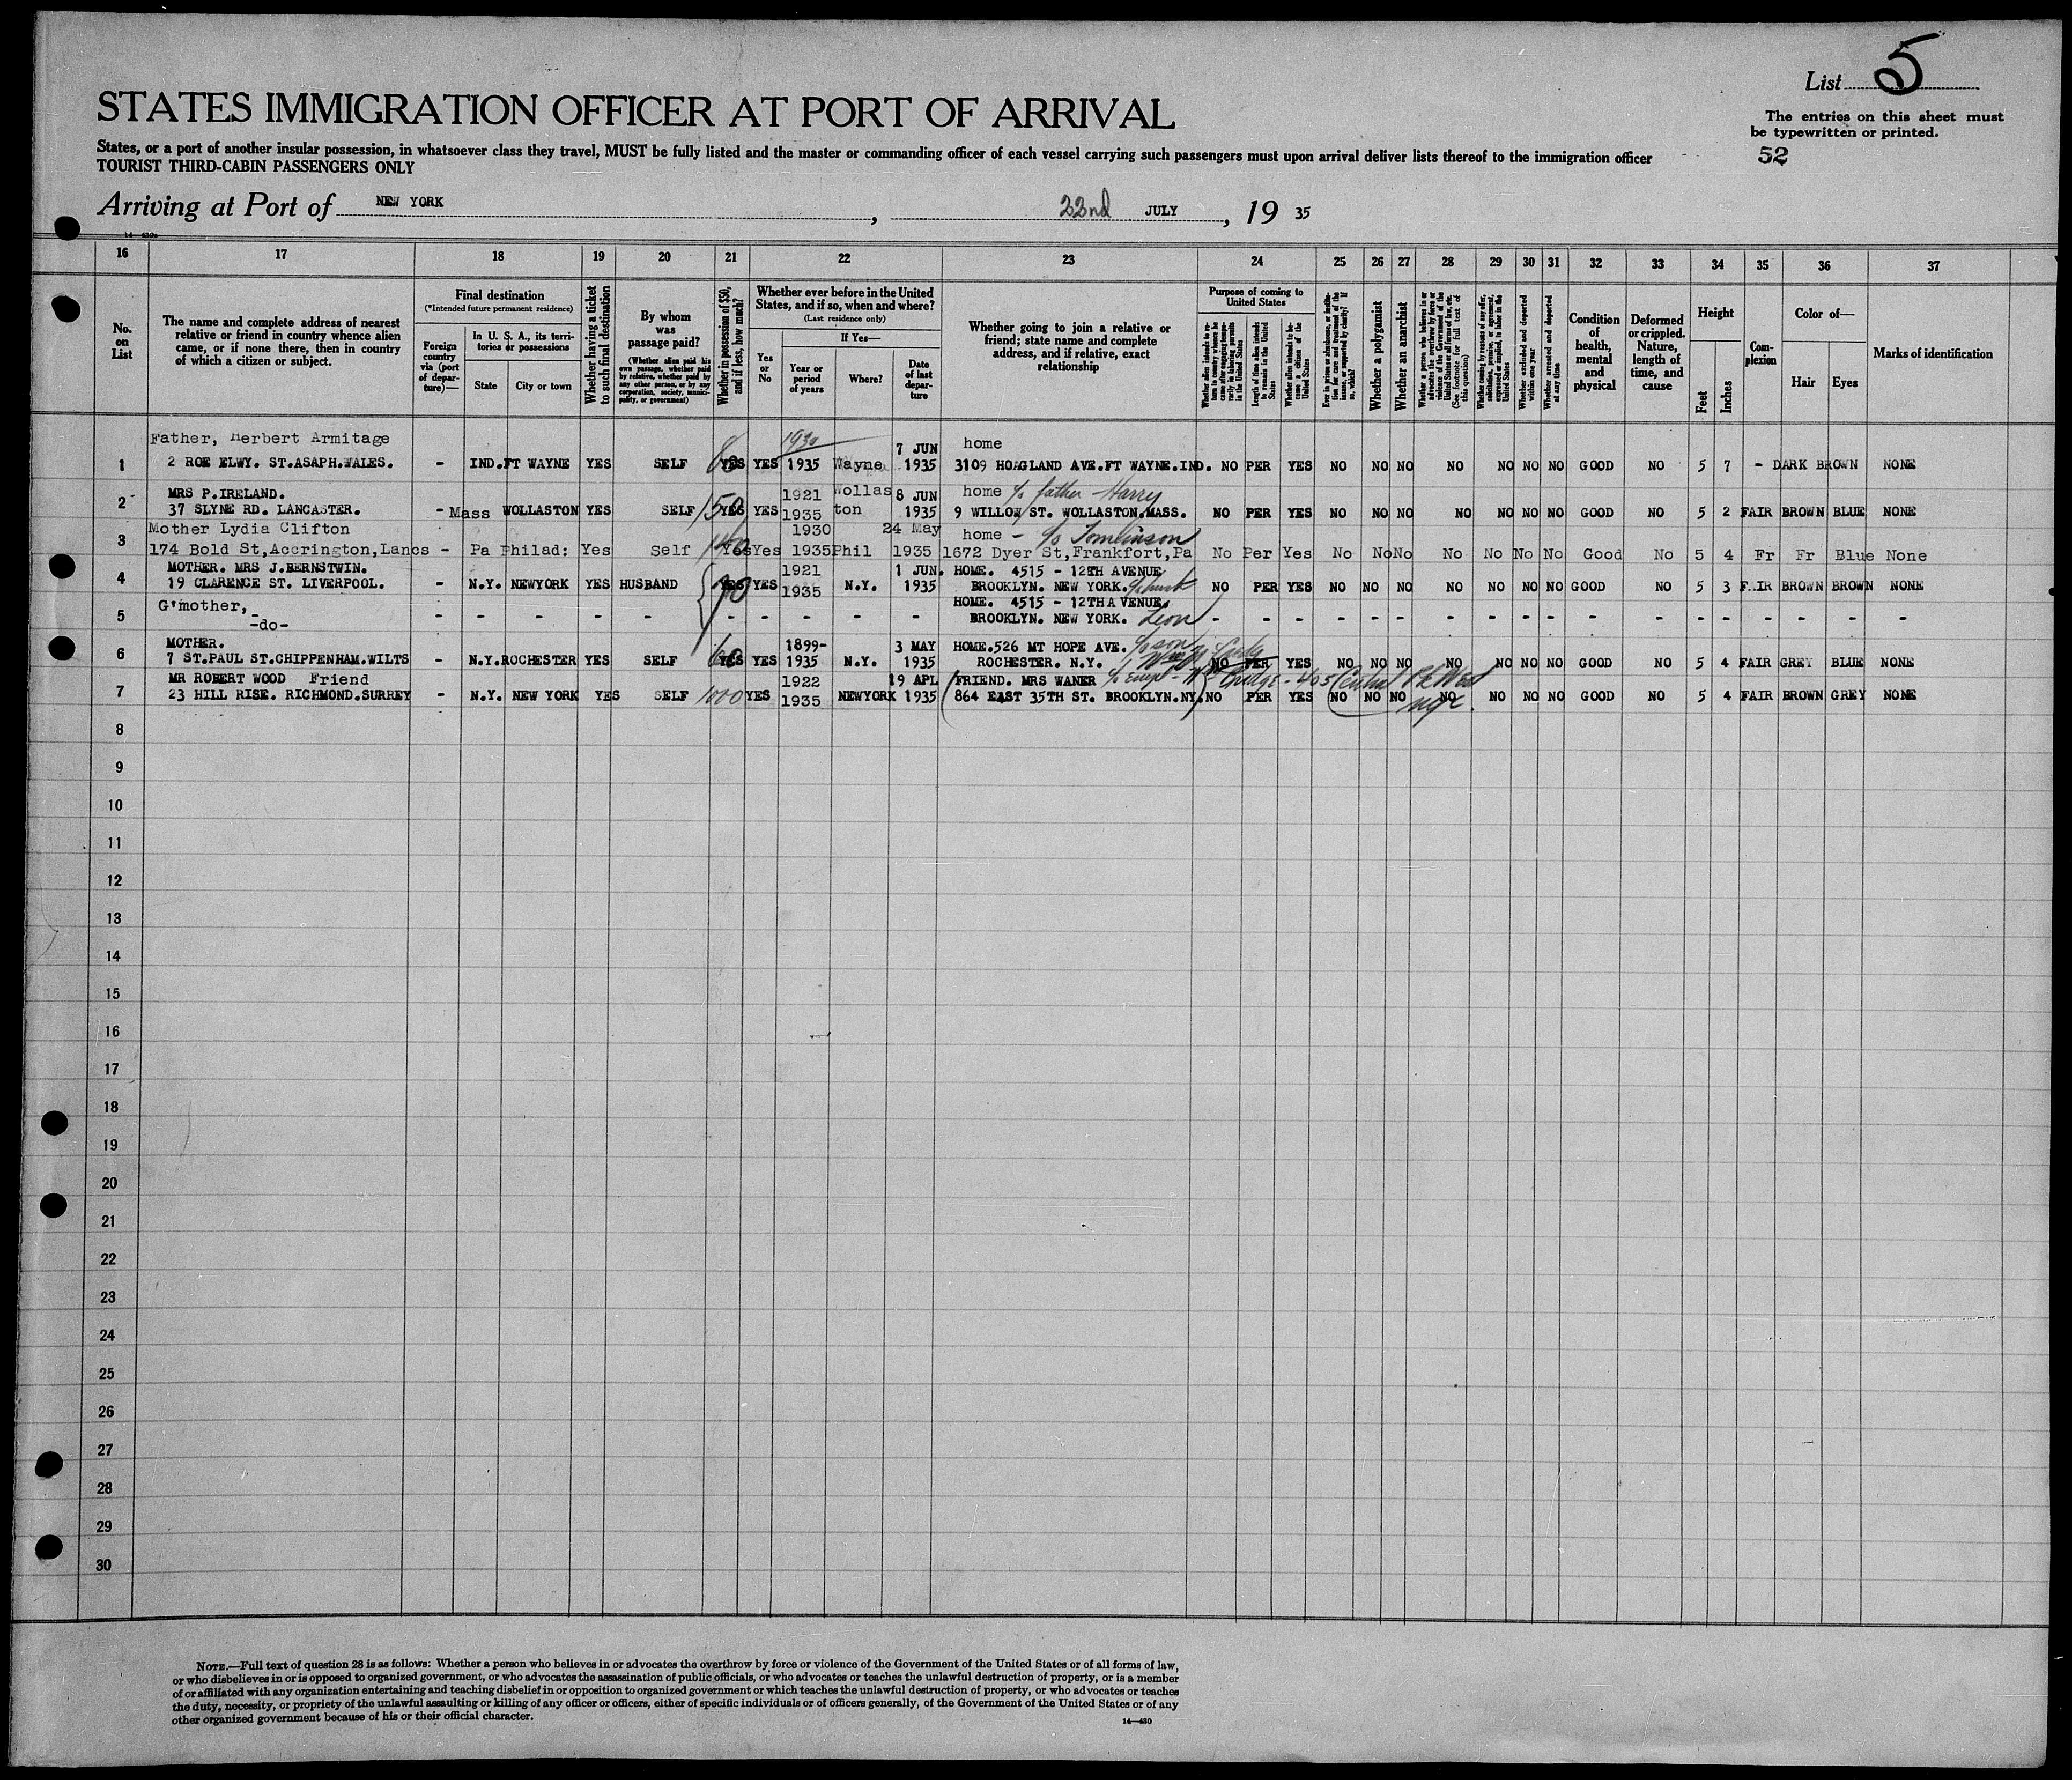 List 5
STATES IMMIGRATION OFFICER AT PORT OF ARRIVAL
The entries on this sheet must
be typewritten or printed.
States, or a port of another insular possession, in whatsoever class they travel, MUST be fully listed and the master or commanding officer of each vessel carrying such passengers must upon arrival deliver lists thereof to the immigration officer
52
TOURIST THIRD-CABIN PASSENGERS ONLY
Arriving at Port of NEW YORK, 22nd JULY, 19 35
16 17 18 19 20 21 22 23 24 25 26 27 28 29 30 31 32 33 34 35 36 37
No. on List
The name and complete address of nearest relative or friend in country whence alien came, or if none there, then in country of which a citizen or subject.
Final destination
(*Intended future permanent residence)
Foreign country via (port of departure)—
In U. S. A., its territories or possessions
State
City or town
Whether having a ticket to such final destination
By whom was passage paid?
(Whether alien paid his own passage, whether paid by relative, whether paid by any other person, or by any corporation, society, municipality, or government)
Whether in possession of $50, and if less, how much?
Whether ever before in the United States, and if so, when and where?
(Last residence only)
Yes or No
If Yes—
Year or period of years
Where?
Date of last departure
Whether going to join a relative or friend; state name and complete address, and if relative, exact relationship
Purpose of coming to United States
Whether alien intends to return to country whence he came after engaging temporarily in laboring pursuits in the United States
Length of time alien intends to remain in the United States
Whether alien intends to become a citizen of the United States
Ever in prison or almshouse, or institution for care and treatment of the insane, or supported by charity? If so, which?
Whether a polygamist
Whether an anarchist
Whether a person who believes in or advocates the overthrow by force or violence of the Government of the United States or all forms of law, etc. (See footnote for full text of this question)
Whether coming by reason of any offer, solicitation, promise, or agreement, expressed or implied, to labor in the United States
Whether excluded and deported within one year
Whether arrested and deported at any time
Condition of health, mental and physical
Deformed or crippled. Nature, length of time, and cause
Height
Feet
Inches
Complexion
Color of—
Hair
Eyes
Marks of identification
Father, Herbert Armitage 1930 7 JUN home
1 2 ROE ELWY. ST.ASAPH.WALES. - IND. FT WAYNE YES SELF YES YES 1935 Wayne 1935 3109 HOAGLAND AVE.FT WAYNE.IND. NO PER YES NO NO NO NO NO NO NO GOOD NO 5 7 - DARK BROWN NONE
MRS P.IRELAND. 1921 Wollas 8 JUN home c/o father Harry
2 37 SLYNE RD. LANCASTER. - Mass WOLLASTON YES SELF 150 YES YES 1935 ton 1935 9 WILLOW ST. WOLLASTON.MASS. NO PER YES NO NO NO NO NO NO NO GOOD NO 5 2 FAIR BROWN BLUE NONE
Mother Lydia Clifton 1930 24 May home - c/o Tomlinson
3 174 Bold St,Accrington,Lancs - Pa Philad: Yes Self Yes Yes 1935 Phil 1935 1672 Dyer St,Frankfort,Pa No Per Yes No No No No No No No Good No 5 4 Fr Fr Blue None
MOTHER. MRS J.BERNSTWIN. 1921 1 JUN. HOME. 4515 - 12TH AVENUE.
4 19 CLARENCE ST. LIVERPOOL. - N.Y. NEWYORK YES HUSBAND YES YES 1935 N.Y. 1935 BROOKLYN. NEW YORK. c/o husb NO PER YES NO NO NO NO NO NO NO GOOD NO 5 3 FAIR BROWN BROWN NONE
G'mother, HOME. 4515 - 12TH AVENUE.
5 -do- - - - - - - - - - - BROOKLYN. NEW YORK. Leon - - - - - - - - - - - - - - - - - -
MOTHER. 1899- 3 MAY HOME.526 MT HOPE AVE. c/o son
6 7 ST.PAUL ST.CHIPPENHAM.WILTS - N.Y. ROCHESTER YES SELF 60 YES YES 1935 N.Y. 1935 ROCHESTER. N.Y. NO PER YES NO NO NO NO NO NO NO GOOD NO 5 4 FAIR GREY BLUE NONE
MR ROBERT WOOD Friend 1922 19 APL FRIEND. MRS WANER
7 23 HILL RISE. RICHMOND.SURREY - N.Y. NEW YORK YES SELF 1000 YES 1935 NEWYORK 1935 864 EAST 35TH ST. BROOKLYN.NY. NO PER YES NO NO NO NO NO NO NO GOOD NO 5 4 FAIR BROWN GREY NONE
8
9
10
11
12
13
14
15
16
17
18
19
20
21
22
23
24
25
26
27
28
29
30
NOTE.—Full text of question 28 is as follows: Whether a person who believes in or advocates the overthrow by force or violence of the Government of the United States or of all forms of law,
or who disbelieves in or is opposed to organized government, or who advocates the assassination of public officials, or who advocates or teaches the unlawful destruction of property, or is a member
of or affiliated with any organization entertaining and teaching disbelief in or opposition to organized government or which teaches the unlawful destruction of property, or who advocates or teaches
the duty, necessity, or propriety of the unlawful assaulting or killing of any officer or officers, either of specific individuals or of officers generally, of the Government of the United States or of any
other organized government because of his or their official character.
14—430